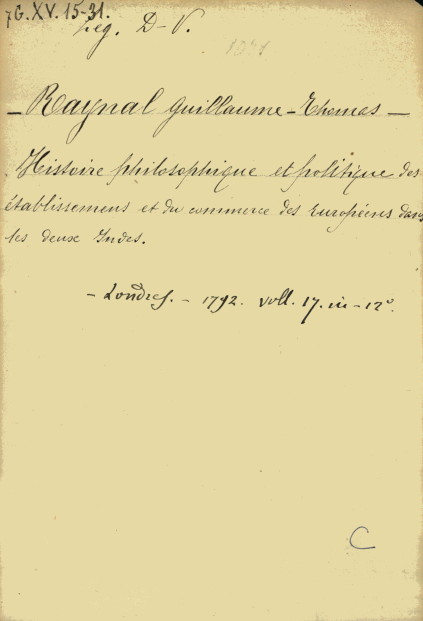 7G.XV.15-31.
Leg. D-V.
1071
— Raynal Guillaume-Thomas —
Histoire philosophique et politique des
établissemens et du commerce des Européens dans
les deux Indes.
- Londres. - 1792. voll. 17. in-12°.
C